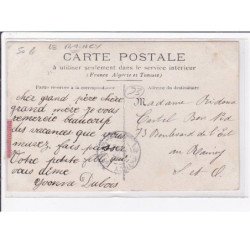 LE RAINCY
CARTE POSTALE
à utiliser seulement dans le service intérieur
(France Algérie et Tunisie)
Partie réservée à la correspondance
Adresse du destinataire
cher grand père chère
grand mère je vous
remercie beaucoup
des vacances que vous
m'avez fais passer
Votre petite fille qui
vous aime
Yvonne Dubois
Madame
73 Boulevard de l'Est
au Raincy
S et O